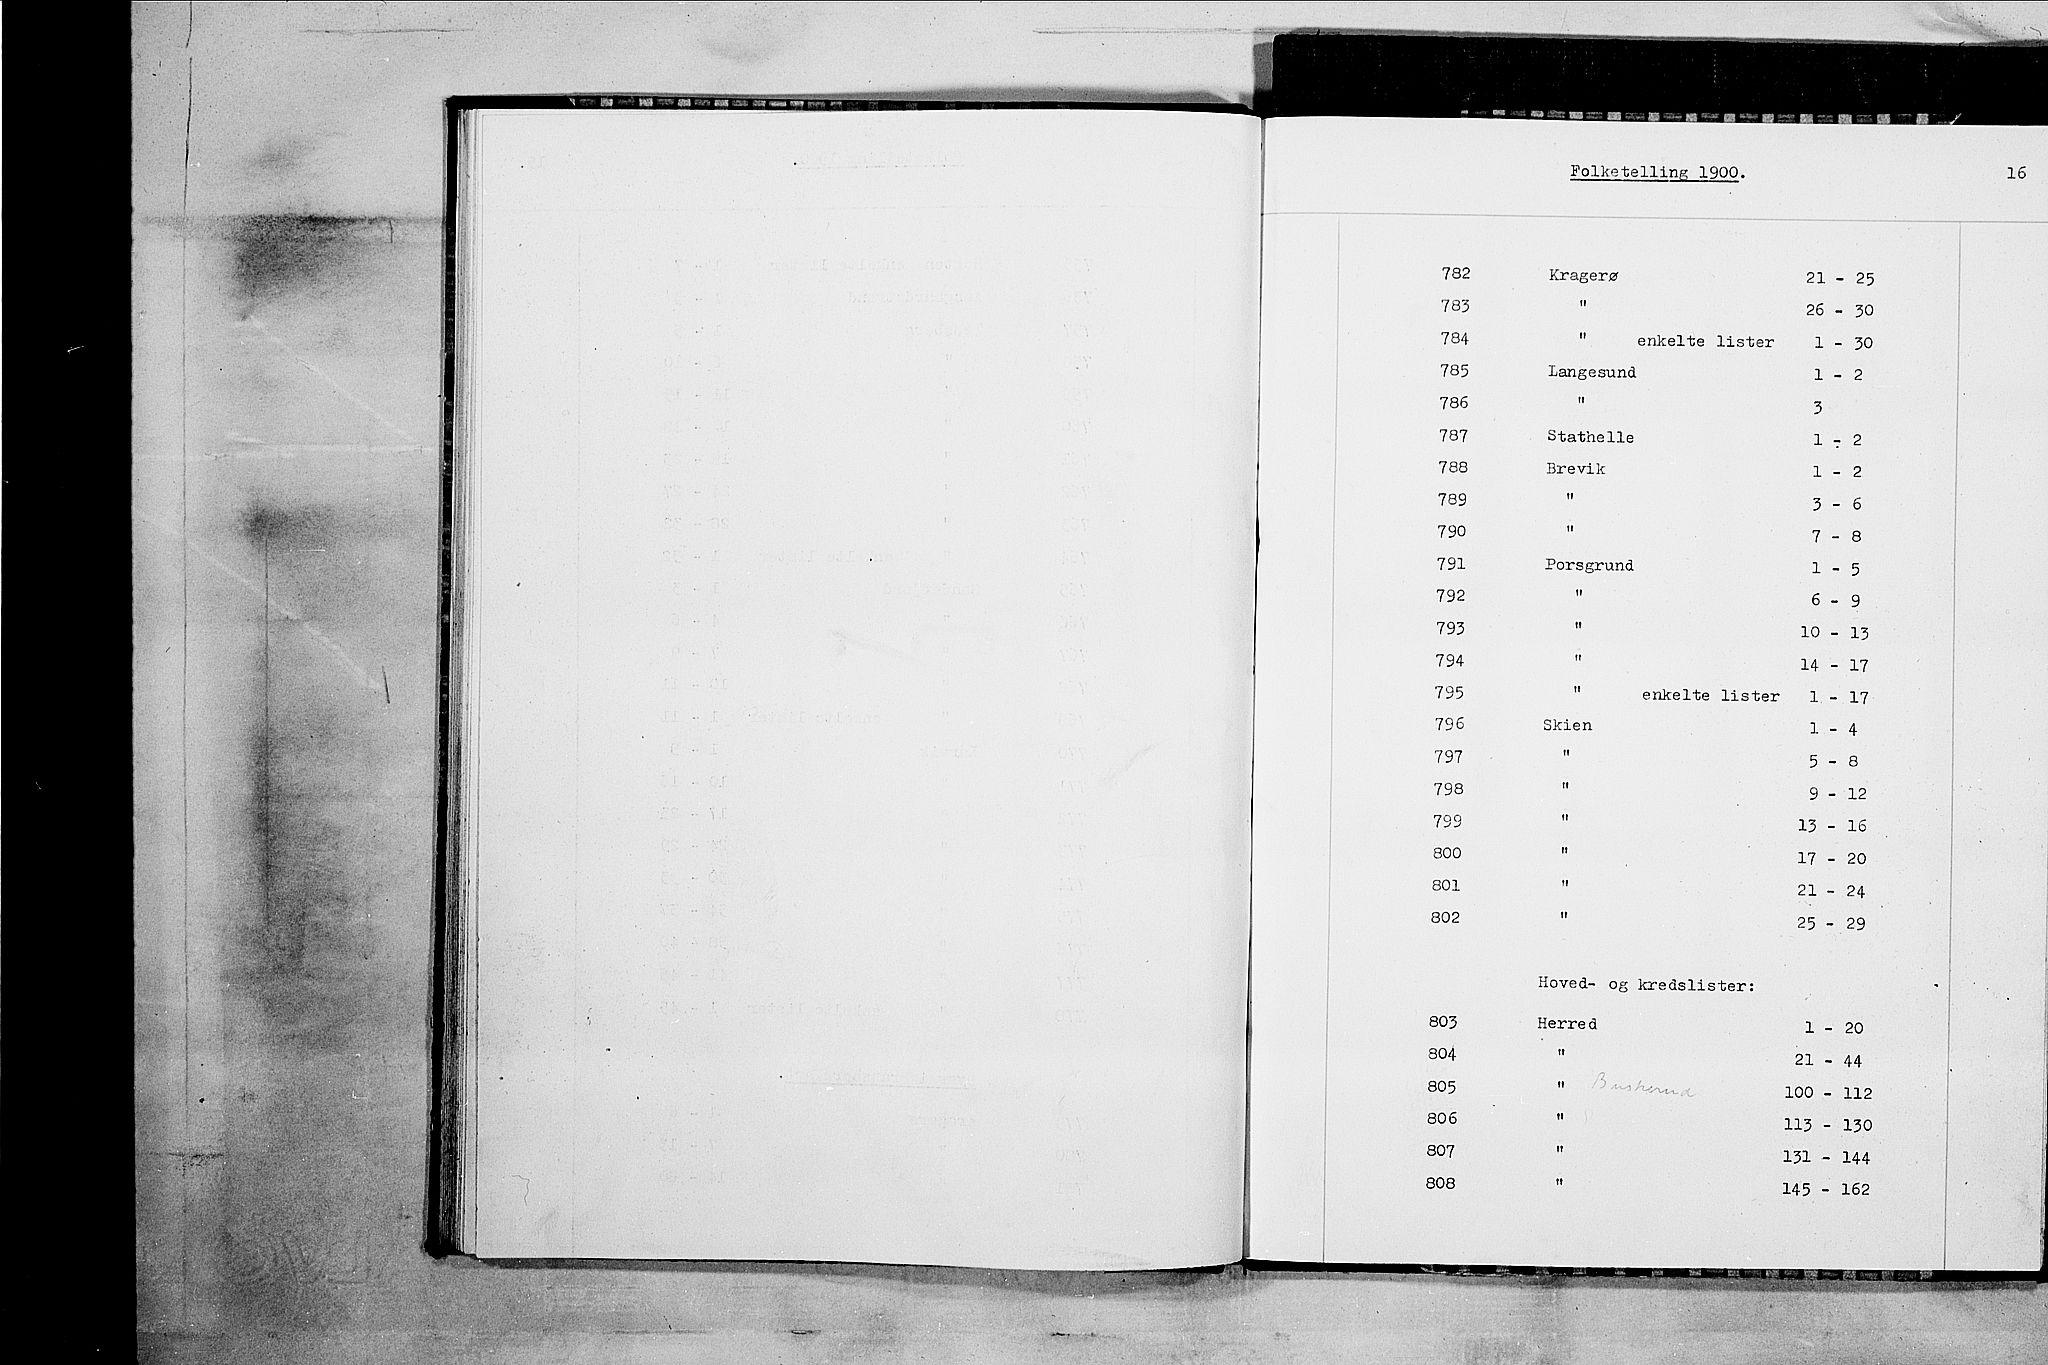 Folketelling 1900. 16
782 Kragerø 21 - 25
783 " 26 - 30
784 " enkelte lister 1 - 30
785 Langesund 1 - 2
786 " 3
787 Stathelle 1 - 2
788 Brevik 1 - 2
789 " 3 - 6
790 " 7 - 8
791 Porsgrund 1 - 5
792 " 6 - 9
793 " 10 - 13
794 " 14 - 17
795 " enkelte lister 1 - 17
796 Skien 1 - 4
797 " 5 - 8
798 " 9 - 12
799 " 13 - 16
800 " 17 - 20
801 " 21 - 24
802 " 25 - 29
Hoved- og kredslister:
803 Herred 1 - 20
804 " 21 - 44
805 " Buskerud 100 - 112
806 " 113 - 130
807 " 131 - 144
808 " 145 - 162